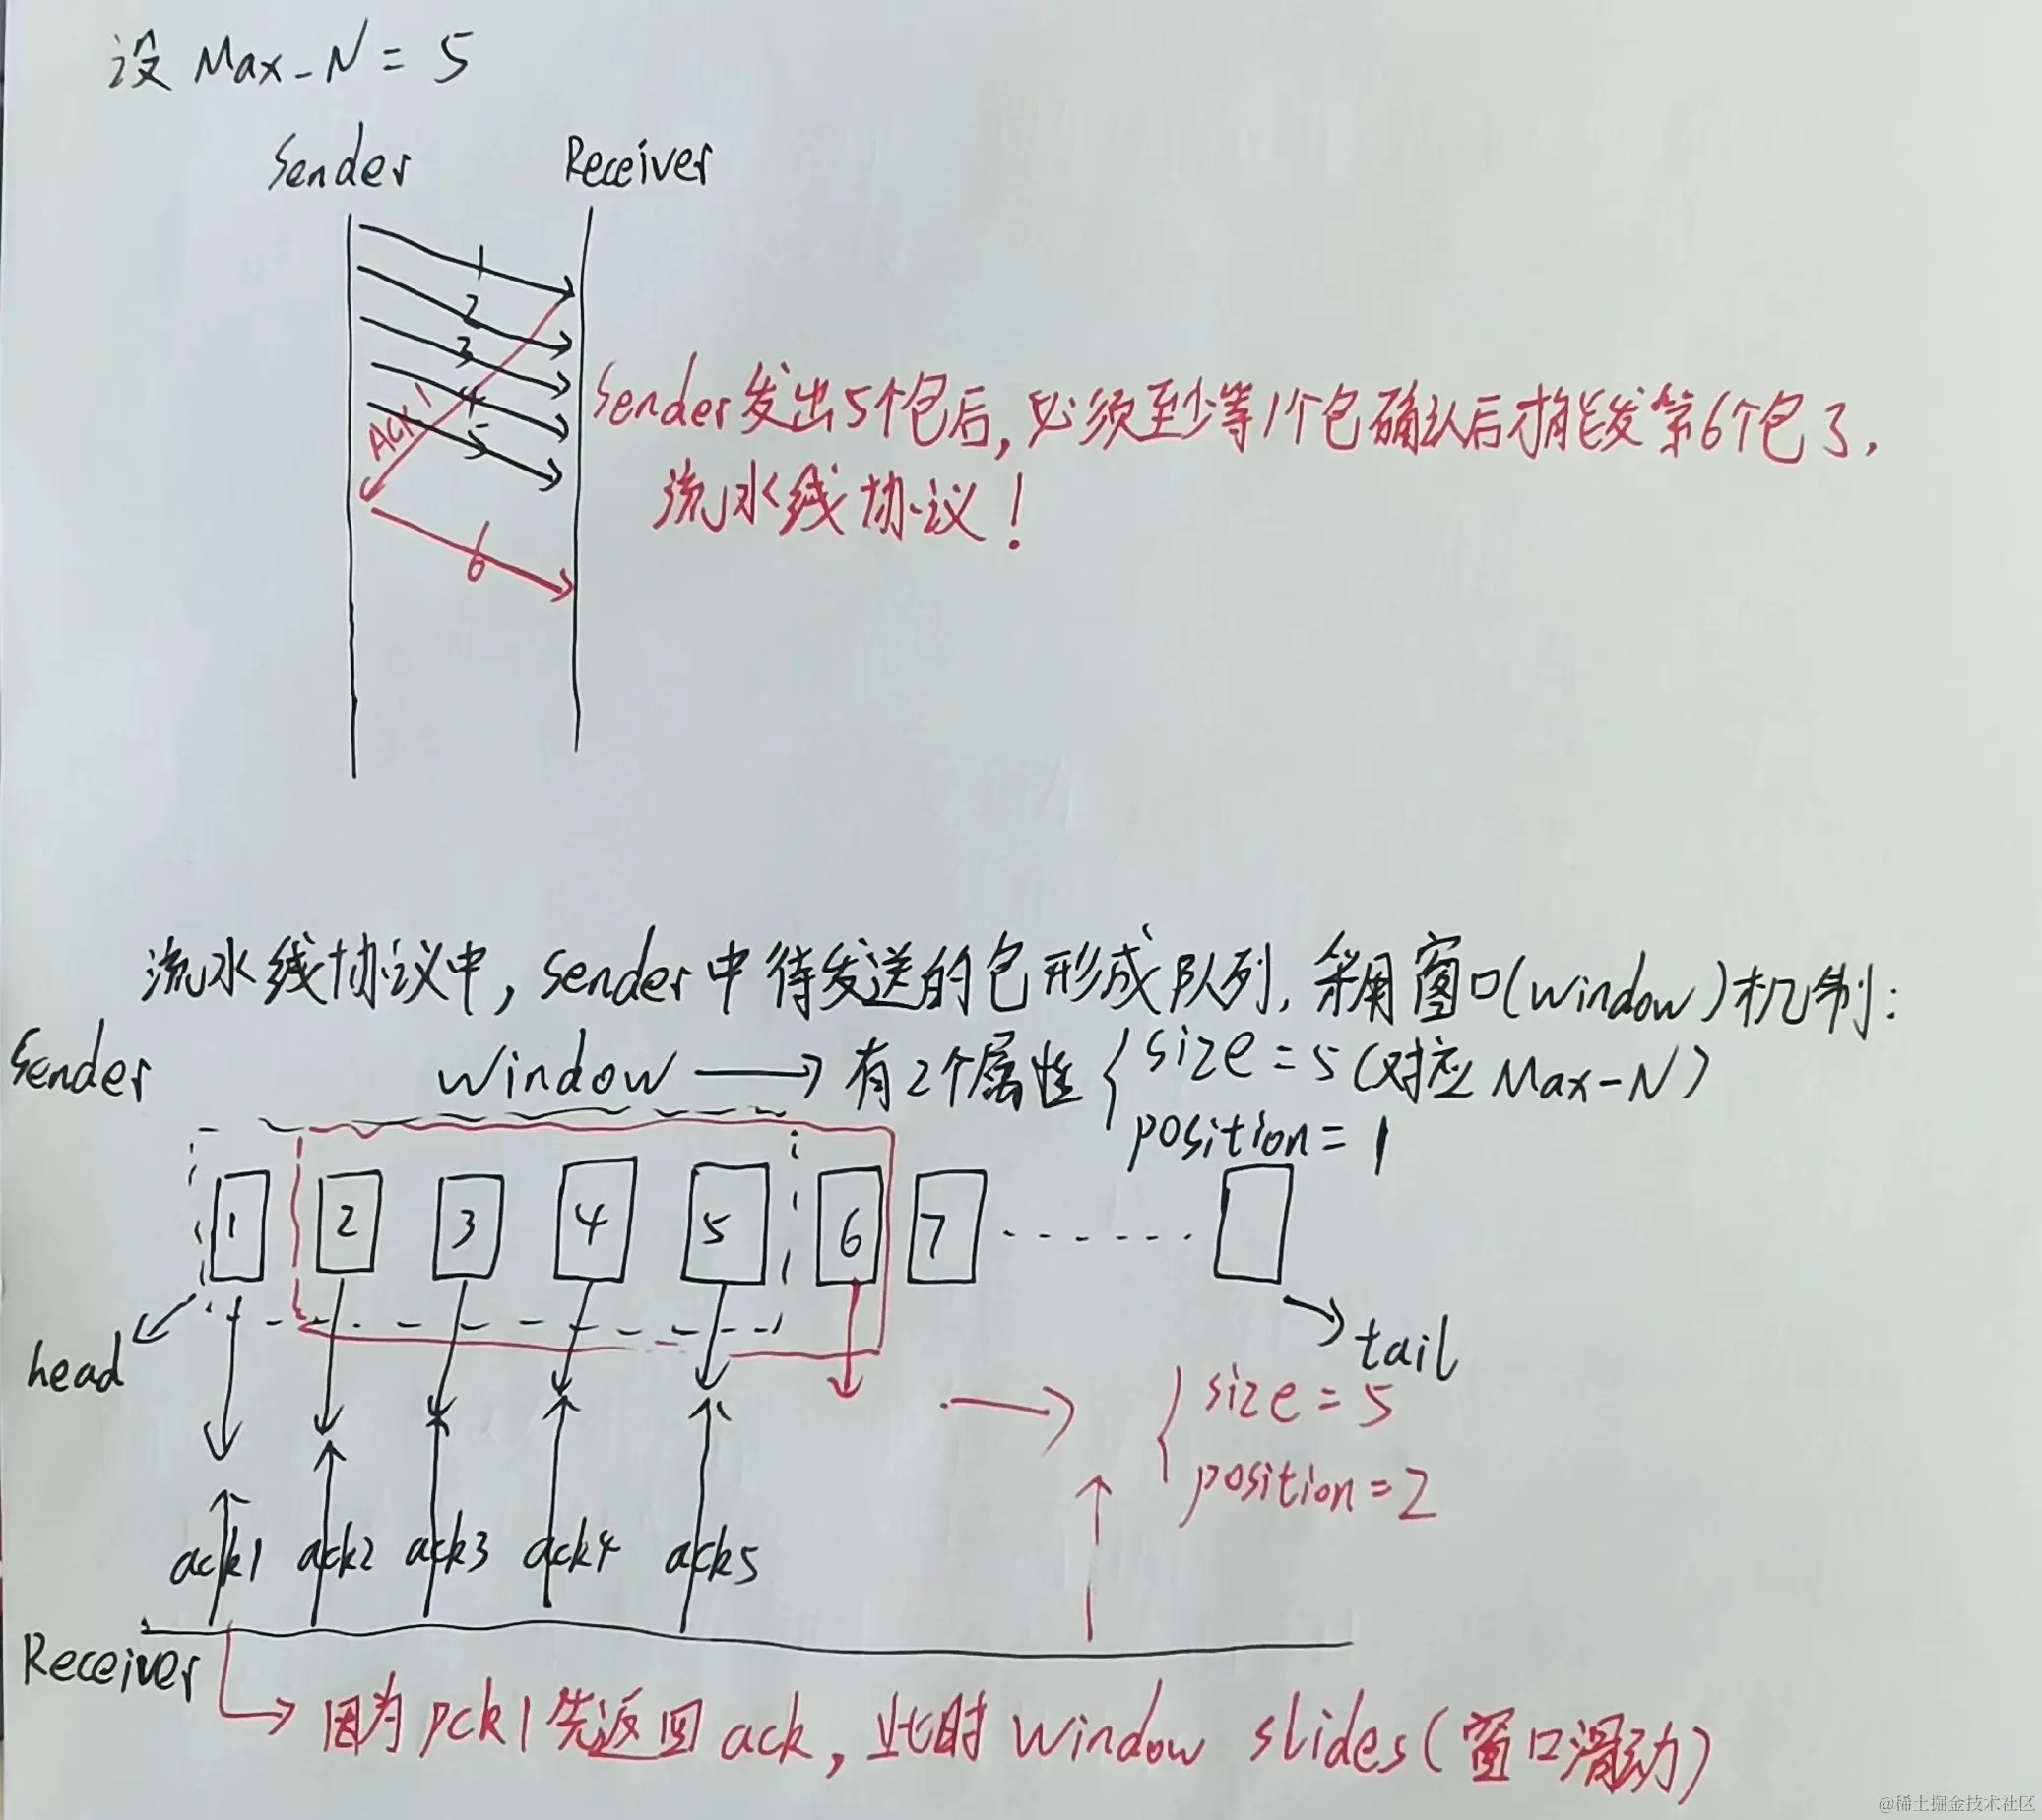 设 Max-N = 5
Sender
Receiver
1
2
3
4
5
Ack1
6
Sender发出5个包后,必须至少等1个包确认后才能发第6个包了,
流水线协议!
流水线协议中,Sender中待发送的包形成队列,采用窗口(window)机制:
Sender
window → 有2个属性 { size = 5 (对应 Max-N)
position = 1
1 2 3 4 5 6 7 ......
head
tail
size = 5
position = 2
ack1 ack2 ack3 ack4 ack5
Receiver
因为pck1先返回ack,此时window slides(窗口滑动)
@稀土掘金技术社区